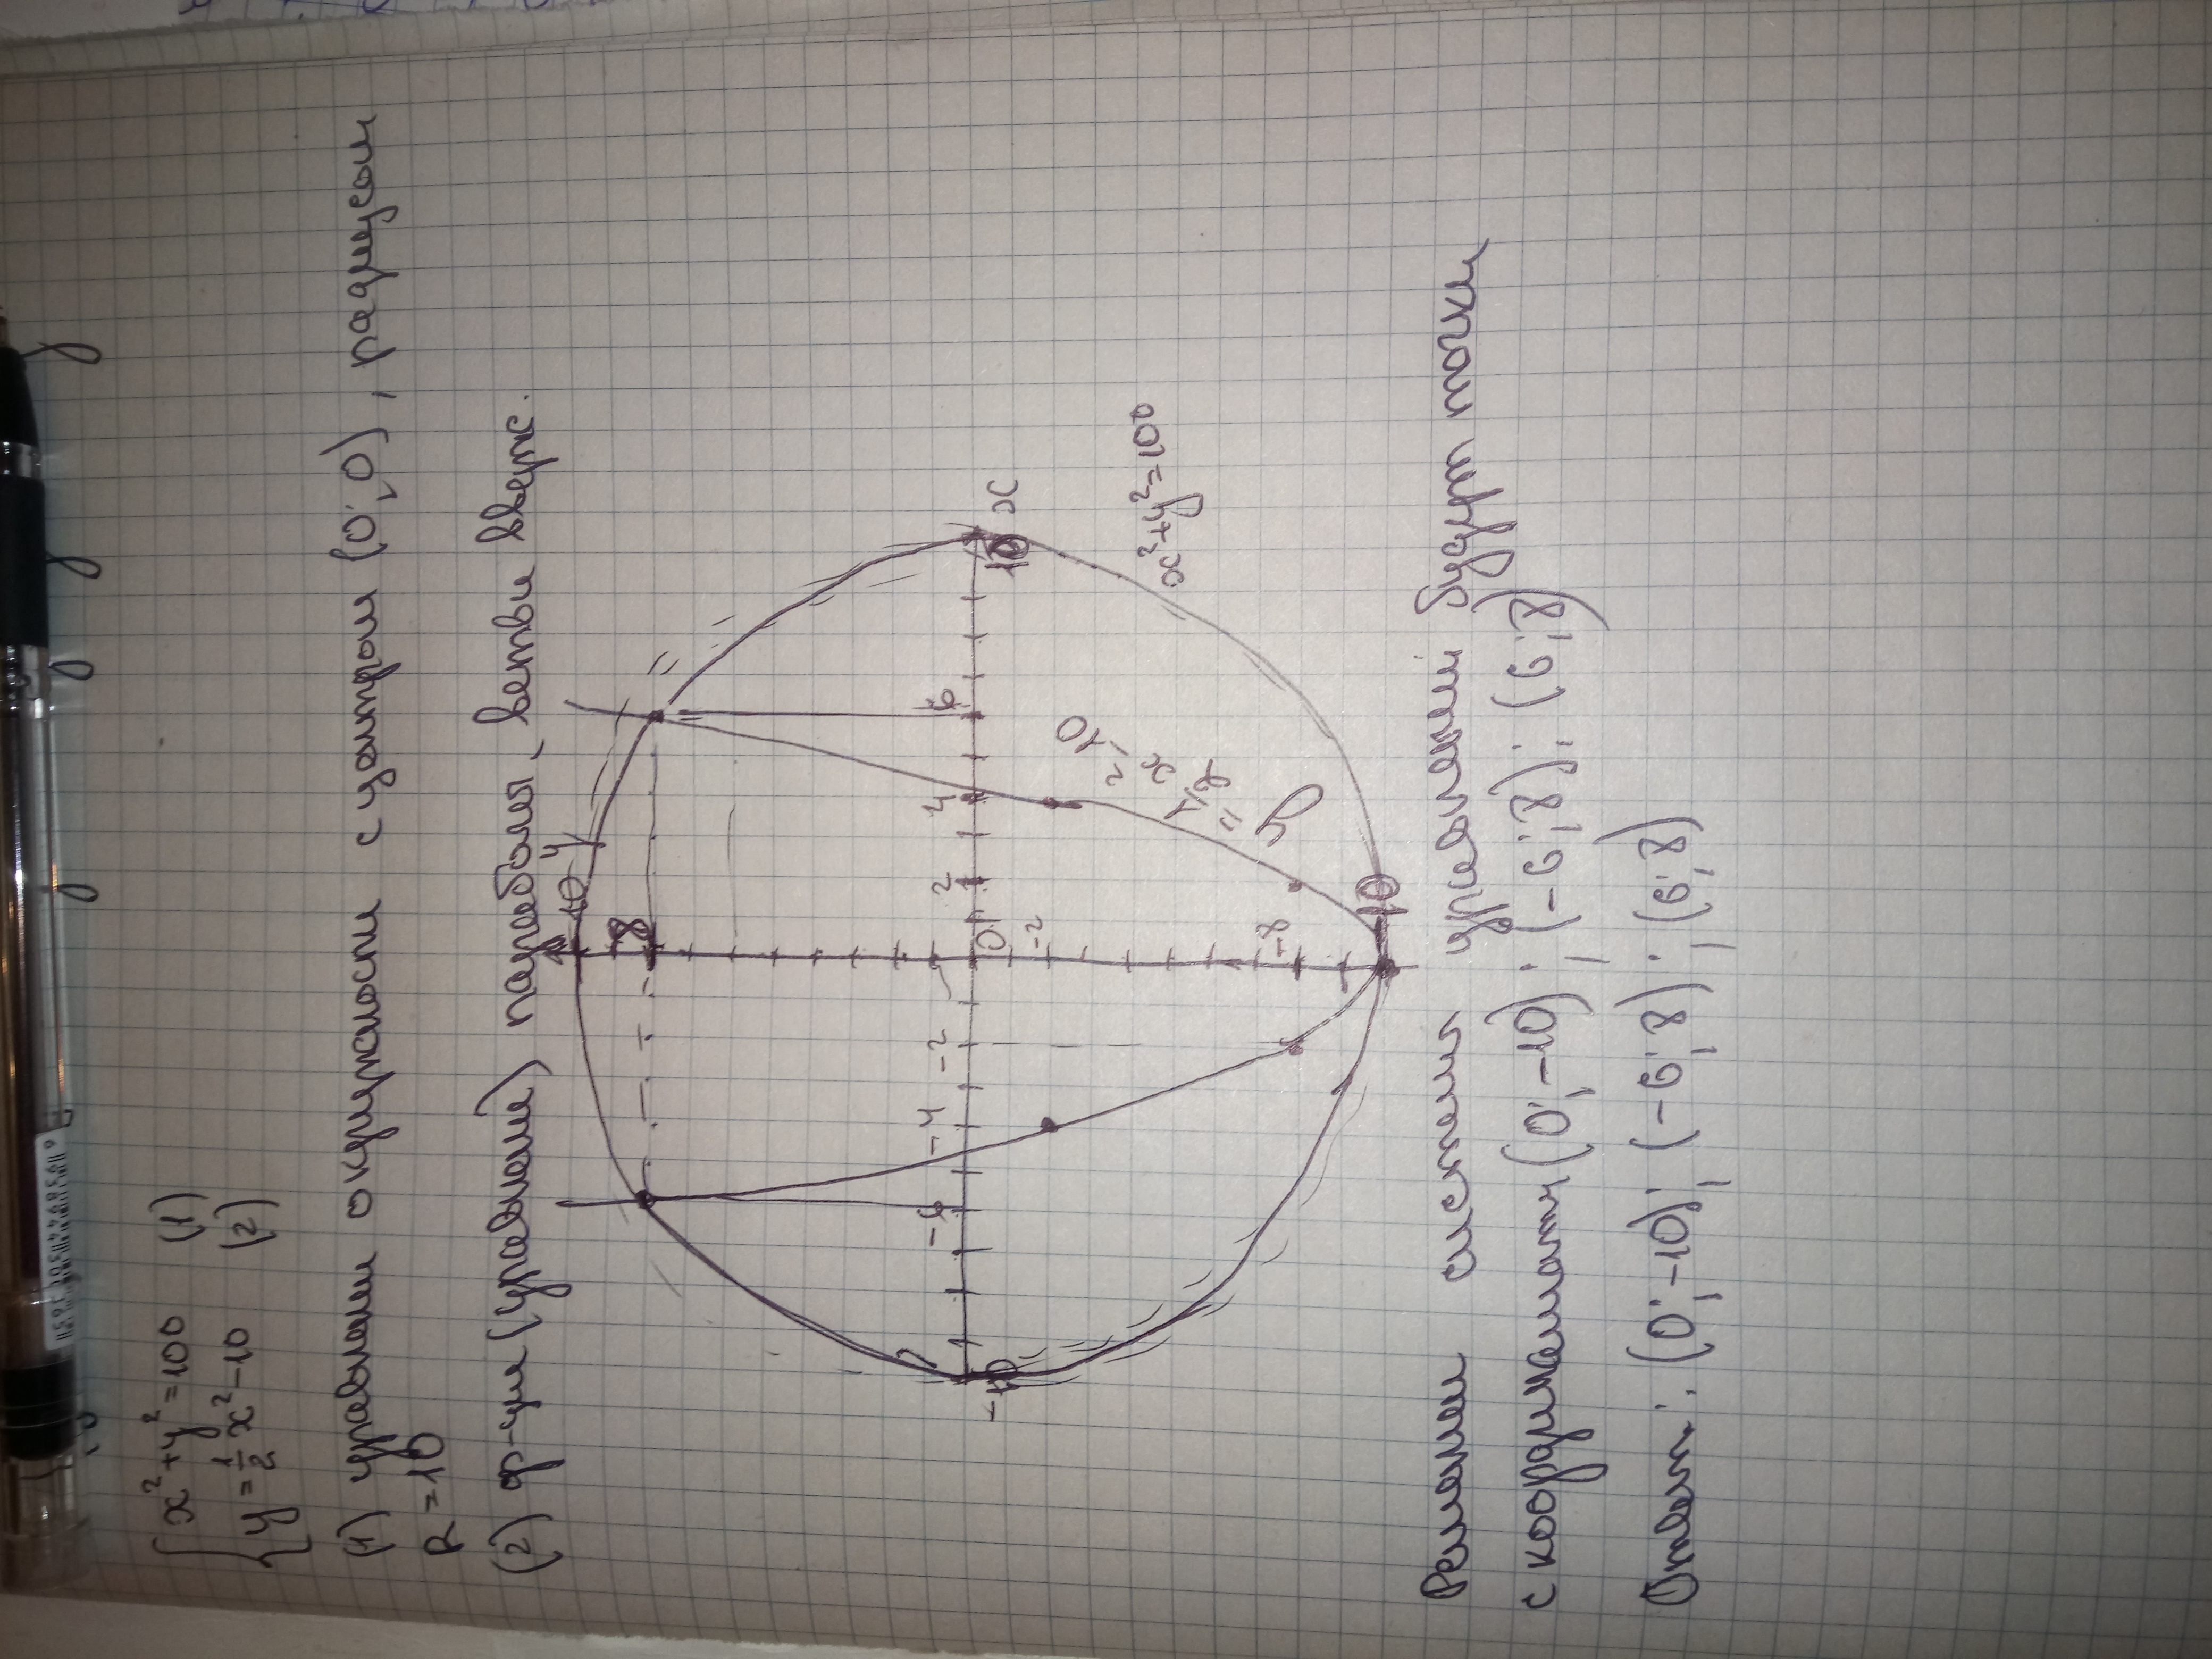 { x² + y² = 100 (1)
y = 1/2 x² - 10 (2)
(1) уравнение окружности с центром (0; 0), радиусом
R = 10
(2) ф-ция (уравнение) парабола, ветви вверх.
10 y
8
-6 -4 -2 0 2 4 6 10 x
-10
-2
-8
-10
y = 1/2 x² - 10
x² + y² = 100
Решением системы уравнений будут точки
с координатами (0; -10); (-6; 8); (6; 8)
Ответ: (0; -10); (-6; 8); (6; 8)